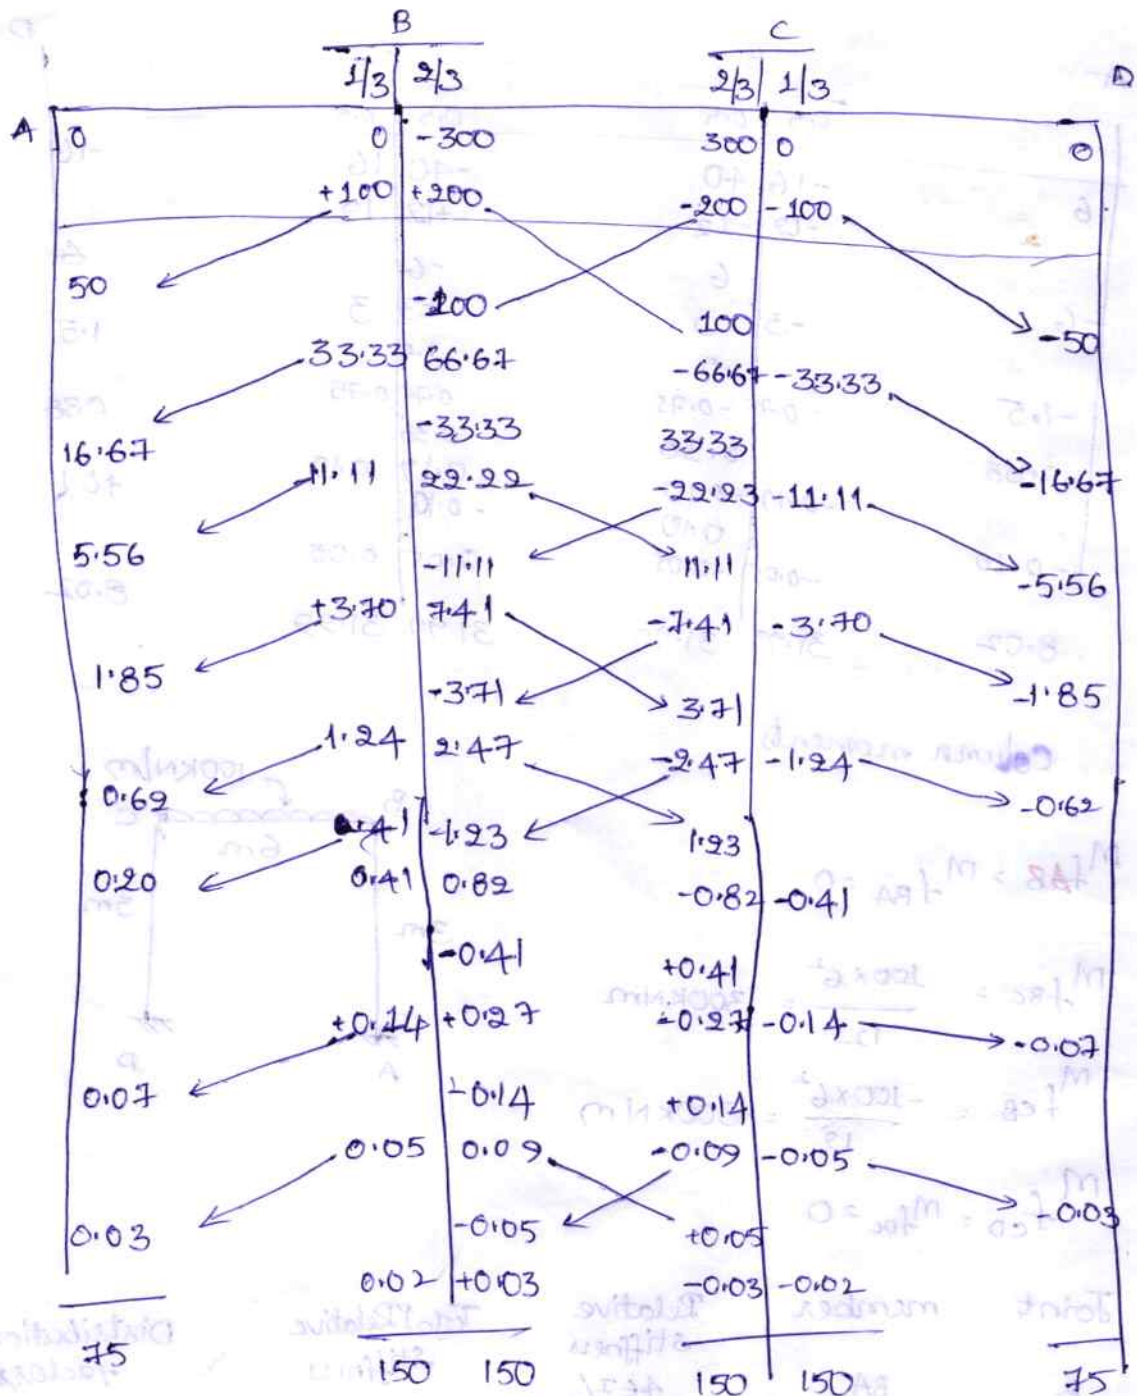 B C
1/3 2/3 2/3 1/3 D
A 0 0 -300 300 0 0
+100 +200 -200 -100
50 -100 100 -50
33.33 66.67 -66.67 -33.33
16.67 -33.33 33.33 -16.67
11.11 22.22 -22.23 -11.11
5.56 -11.11 11.11 -5.56
+3.70 7.41 -7.41 -3.70
1.85 -3.71 3.71 -1.85
1.24 2.47 -2.47 -1.24
0.62 -1.23 1.23 -0.62
0.20 0.41 0.82 -0.82 -0.41
-0.41 +0.41
+0.14 +0.27 -0.27 -0.14 -0.07
0.07 -0.14 +0.14
0.05 0.09 -0.09 -0.05
0.03 -0.05 +0.05 -0.03
0.02 +0.03 -0.03 -0.02
75 150 150 150 150 75